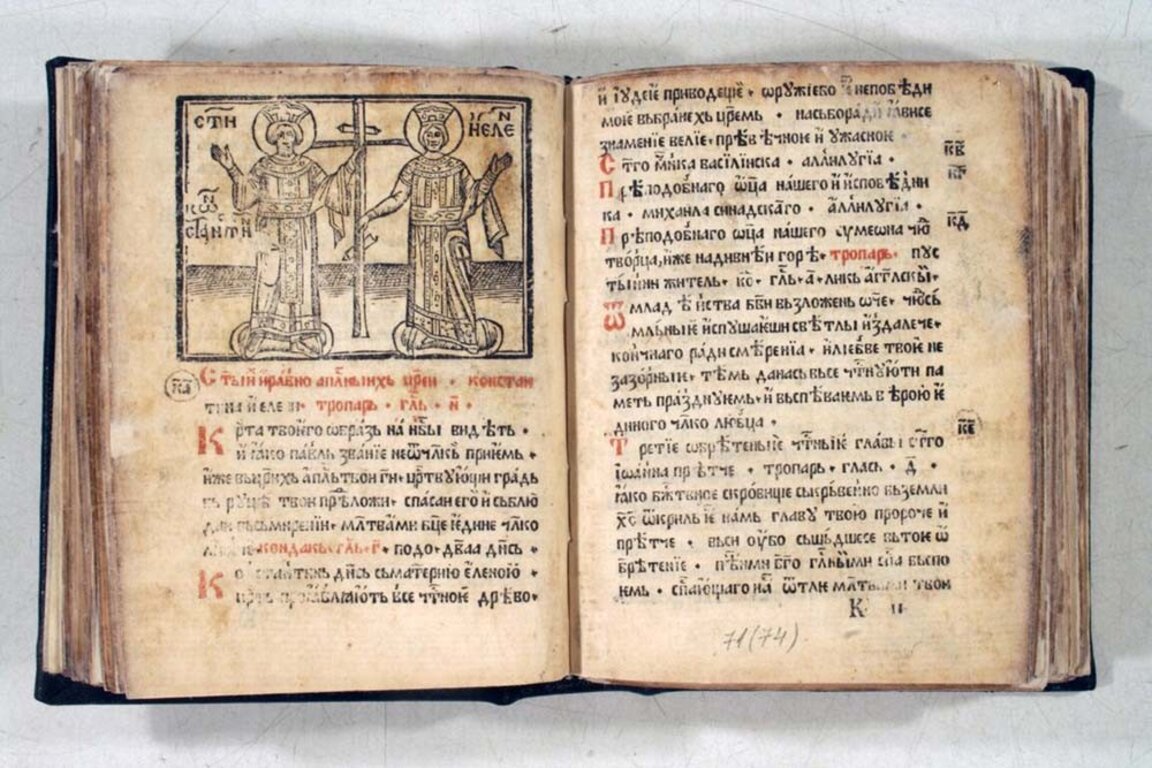 СТ҃Н
І҆С҃Н
НЕЛЕ
КѠ҃Н
СТАНТИН
к҃а
Ст҃ы́й и҆ра́вно апл҃вныихь цр҃еи • констан
тина и҆ еле • тропа́рь • гл҃ь • и҃ •
Крⷭ҇та твоѥ҆го ѡ҆бра́зь на нб҃ы ви́дѣть •
и҆ ꙗ҆ко па́вль зва́нїѥ неѿчл҃кь прїе́мь •
и҆же вь цр҃ихь а҆пл҃ьтвои гн҃и • цр҃тву́ющи гра́дь
рꙋцѣ твои прѣложи • спаса́и ѥго́ и҆ сьблю
мл҃твами бц҃е ѥ҆ди́не чл҃ко
конда́кь • гл҃ь • г҃ • подо • два҃а дн҃сь •
Ко стантинь дн҃сь сьматерїю ѥ҆ле́ною •
ꙗвлꙗ́ють всечт҃ноѥ дрѣ́во •
и҆ і҆ꙋде́їе приводе́щїе • ѡрꙋжїе бо и҆ непобѣ́ди
моѥ вы́бранехь цр҃емь • насьбора ꙗ҆ви́се
зна́менїе ве́лїе • прѣвѣ́чноѥ и҆ ꙋ҆жа́сноѥ •
Ст҃го мн҃ка васілі́иска • аллилꙋ́гїа •
к҃в
Прѣподо́бнаго ѿц҃а на́шего и҆ и҆сповѣ́дни
к҃г
ка • михаи́ла синадска́го • аллилꙋ́гїа •
Прѣподо́бнаго ѡц҃а на́шего сѵмеѡна чю҆
к҃д
тво́рца, и҆же на ди́внѣи го́рѣ • тропа́рь • пꙋс
ты́нни жи́тель • ко • гл҃ь • а҃ • ли́кь а҆гг҃лскы •
Ѿ млад ѣ́нства бв҃и вьзло́жень ѡ҆ч҃е • чю҆сь
мльны́ѥ и҆спꙋща́ѥши свѣ́тлы и҆здале́че •
кончнаго ра́ди смѣре́нїа • и҆ лю́бве твоѥ́ не
зазо́рныѥ • тѣ́мь дана́сь все чт҃нꙋ́ю ти па
меть пра́зднꙋѥмь • и҆ вьспѣва́ѥмь вѣ́рою ѥ҆
ди́ного чл҃ко лю́бца •
к҃е
Тре́тїе ѡ҆брѣте́ныѥ чт҃ныѥ гла́вы ст҃го
і҆ѡа́нна прѣ́тче • тропа́рь • гла́сь • д҃ •
ꙗ҆ко бж҃тьвное скро́вище ськрьве́нно вь земли
х҃с ѿкри́лъ ѥ на́мь гла́вꙋ твою́ проро́че и҆
прѣ́тче • вьси ѹ҆бо сьше́дшесе вь тоѥ ѡ
брѣте́нїе • пѣ́нми бг҃о гл҃ными сп҃са вьспо
ѥмь • сп҃а́ющаго на ѿ тлѥ мл҃твами твои
К
71(74)